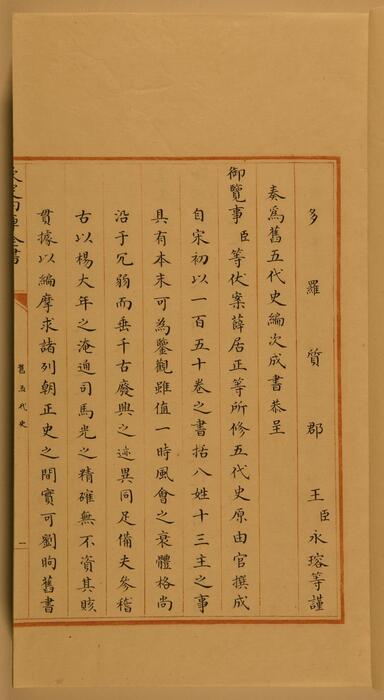 多羅質郡王臣永瑢等謹
奏爲舊五代史編次成書恭呈
御覽事臣等伏案薛居正等所修五代史原由官撰成
自宋初以一百五十卷之書括八姓十三主之事
具有本末可為鑒觀雖值一時風會之衰體格尚
沿于冗弱而垂千古廢興之迹異同足備夫參稽
古以楊大年之淹通司馬光之精確無不資其賅
貫據以編摩求諸列朝正史之間實可劉昫舊書
欽定四庫全書
舊五代史
一